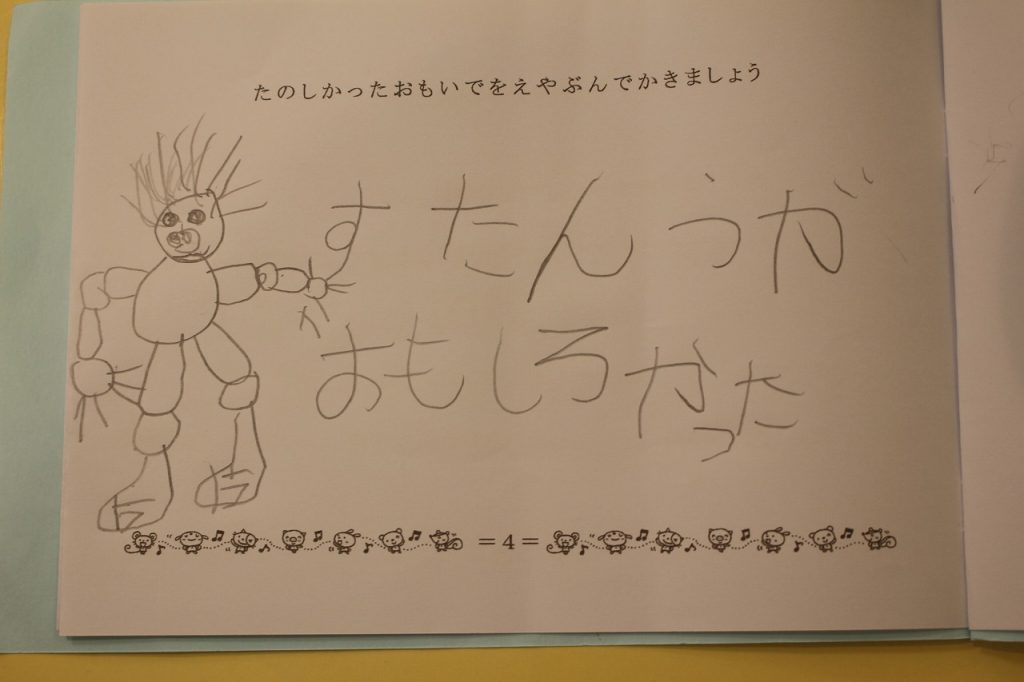 たのしかったおもいでをえやぶんでかきましょう
すたんうが
おもしろかった
=4=